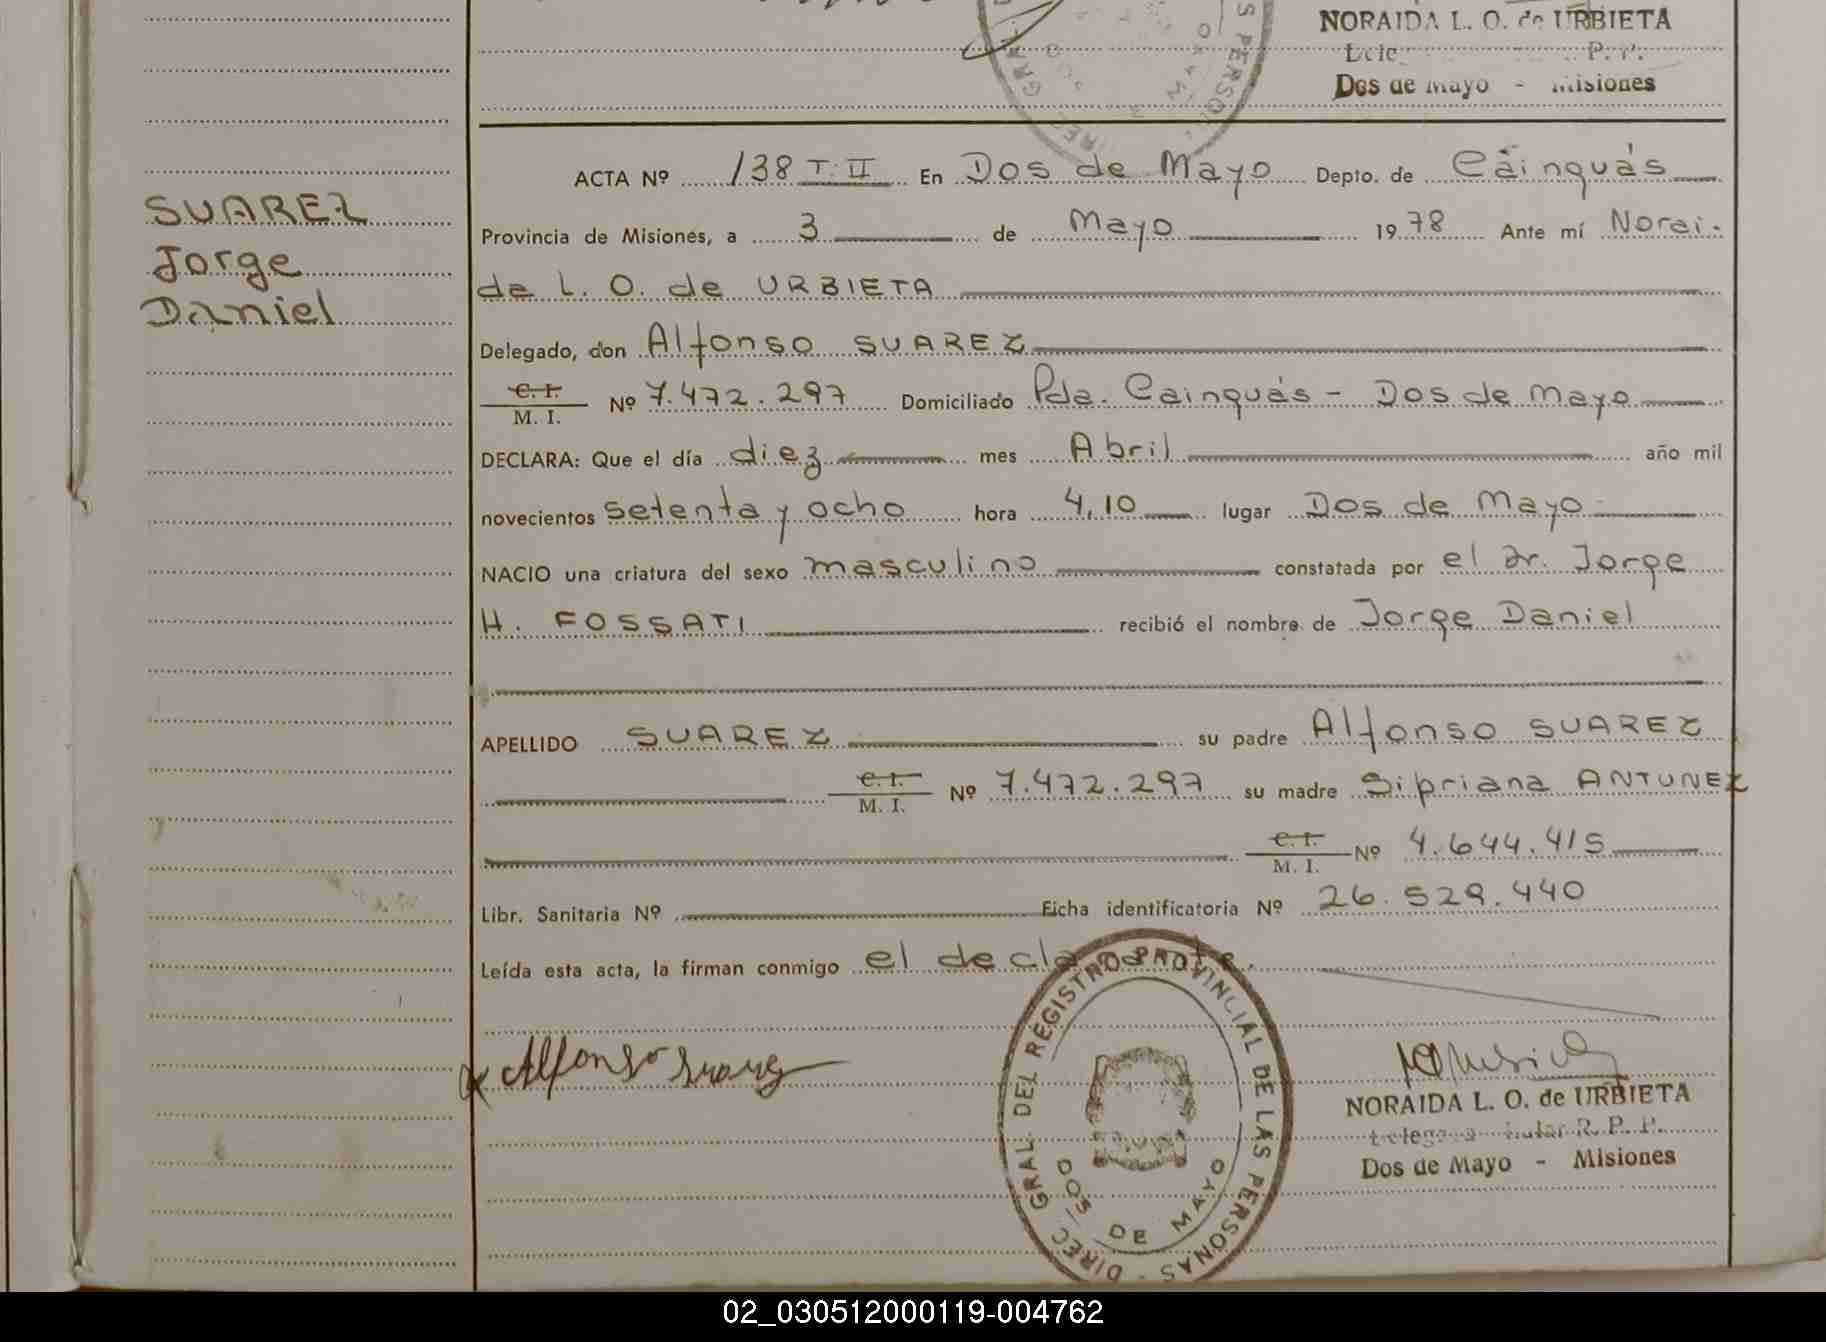 NORAIDA L. O. de URBIETA
P. P.
Dos de Mayo - Misiones
SUAREZ
Jorge
Daniel
ACTA Nº 138 T. II En Dos de Mayo Depto. de Cainguás
Provincia de Misiones, a 3 de Mayo 1978 Ante mí Norai-
da L. O. de URBIETA
Delegado, don Alfonso SUAREZ
C. I.
M. I. Nº 7.472.297 Domiciliado Pda. Cainguás - Dos de Mayo
DECLARA: Que el día diez mes Abril año mil
novecientos setenta y ocho hora 4,10 lugar Dos de Mayo
NACIO una criatura del sexo masculino constatada por el Dr. Jorge
H. FOSSATI recibió el nombre de Jorge Daniel
APELLIDO SUAREZ su padre Alfonso SUAREZ
C. I.
M. I. Nº 7.472.297 su madre Sipriana ANTUNEZ
C. I.
M. I. Nº 4.644.415
Libr. Sanitaria Nº Ficha identificatoria Nº 26.529.440
Leída esta acta, la firman conmigo el declarante.
Alfonso Suarez
DIREC GRAL. DEL REGISTRO PROVINCIAL DE LAS PERSONAS
DOS DE MAYO
NORAIDA L. O. de URBIETA
R. P. P.
Dos de Mayo - Misiones
02_030512000119-004762